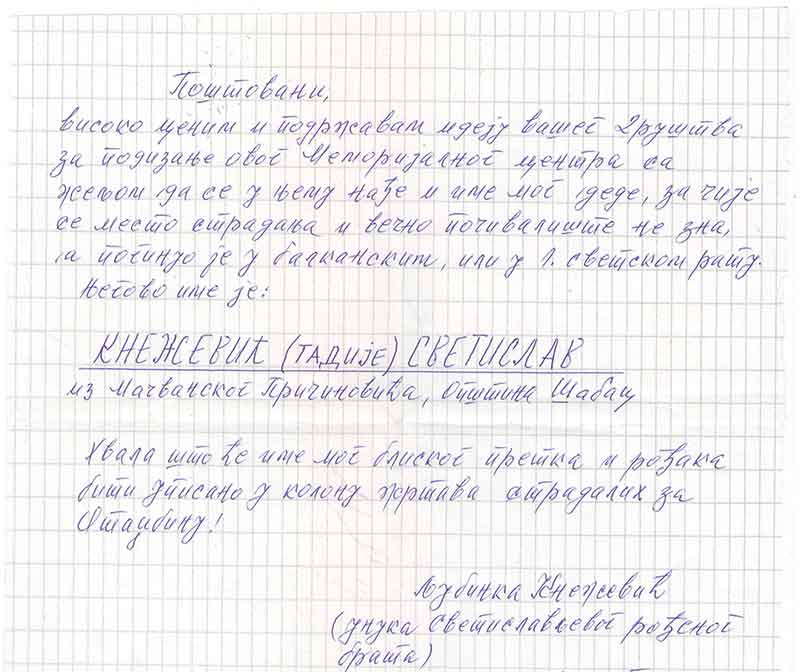 Поштовани,
високо ценим и подржавам идеју вашег Друштва
за подизање овог Меморијалног центра са
жељом да се у њему нађе и име мог деде, за чије
се место страдања и вечно почивалиште не зна,
а погинуо је у балканским, или у I. светском рату.
Његово име је:
КНЕЖЕВИЋ (ТАДИЈЕ) СВЕТИСЛАВ
из Мачванског Причиновића, Општина Шабац
Хвала што ће име мог блиског претка и рођака
бити уписано у колону жртава страдалих за
Отаџбину!
Љубинка Кнежевић
(унука Светислављевог рођеног
брата)